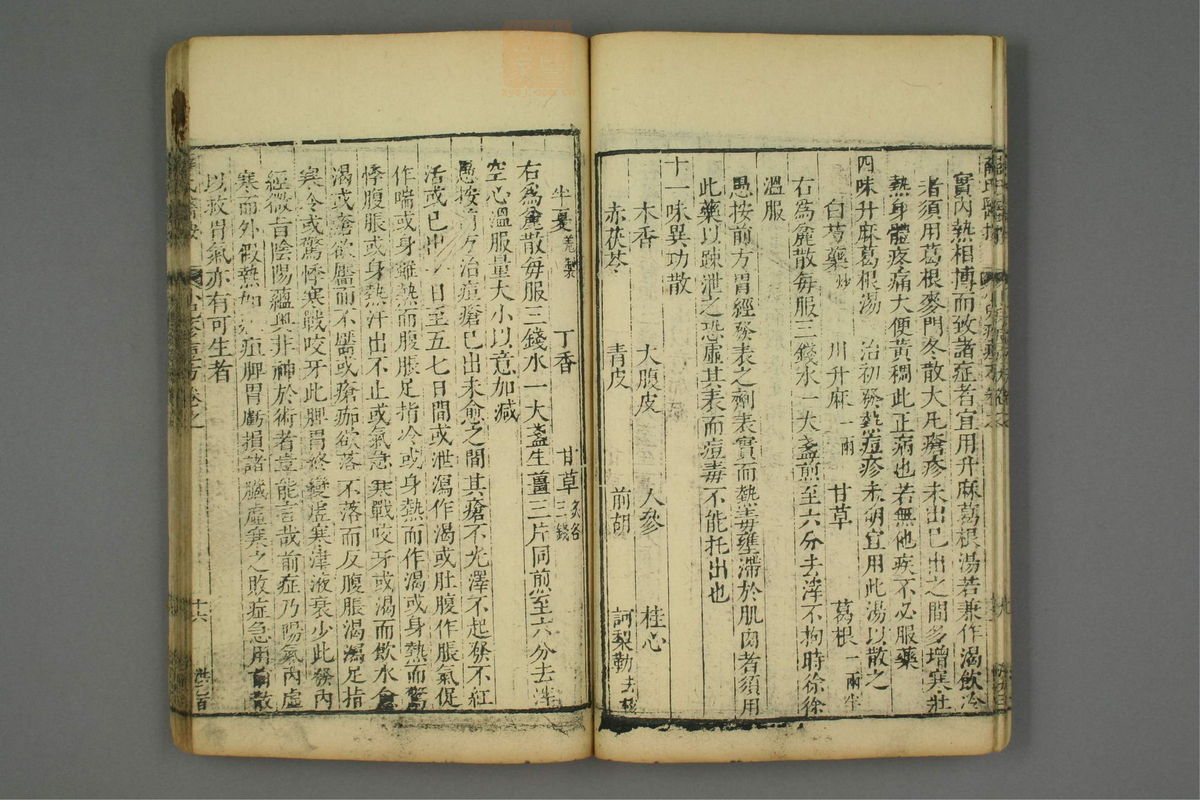 實內熱相博而致諸症者宜用升麻葛根湯若兼作渴飲冷
者須用葛根麥門冬散大凡瘡疹未出已出之間多增寒壯
熱身體疼痛大便黃稠此正病也若無他疾不必服藥
四味升麻葛根湯 治初發熱痘疹未明宜用此湯以散之
白芍藥炒 川升麻一兩 甘草 葛根一兩半
右為麄散每服三錢水一大盞煎至六分去滓不拘時徐徐
溫服
愚按前方胃經發表之劑表實而熱毒壅滯於肌肉者須用
此藥以疎泄之恐虛其表而痘毒不能托出也
十一味異功散
木香 大腹皮 人參 桂心
赤茯苓 青皮 前胡 訶梨勒去核
半夏薑製 丁香 甘草炙各三錢
右為麄散每服三錢水一大盞生薑三片同煎至六分去滓
空心溫服量大小以意加減
愚按前方治痘瘡已出未愈之間其瘡不光澤不起發不紅
活或已出一日至五七日間或泄瀉作渴或肚腹作脹氣促
作喘或身雖熱而腹脹足指冷或身熱而作渴或身熱而驚
悸腹脹或身熱汗出不止或氣急寒戰咬牙或渴而飲水
渴或養欲靨而不靨或瘡痂欲落不落而反腹脹渴瀉足指
寒冷或驚悸寒戰咬牙此脾胃終變虛寒津液衰少此發內
經微旨陰陽蘊奧非神於術者豈能言哉前症乃陽氣內虛
寒而外假熱如脾胃虧損諸臟虛寒之敗症急用前散
以救胃氣亦有可生者
十六